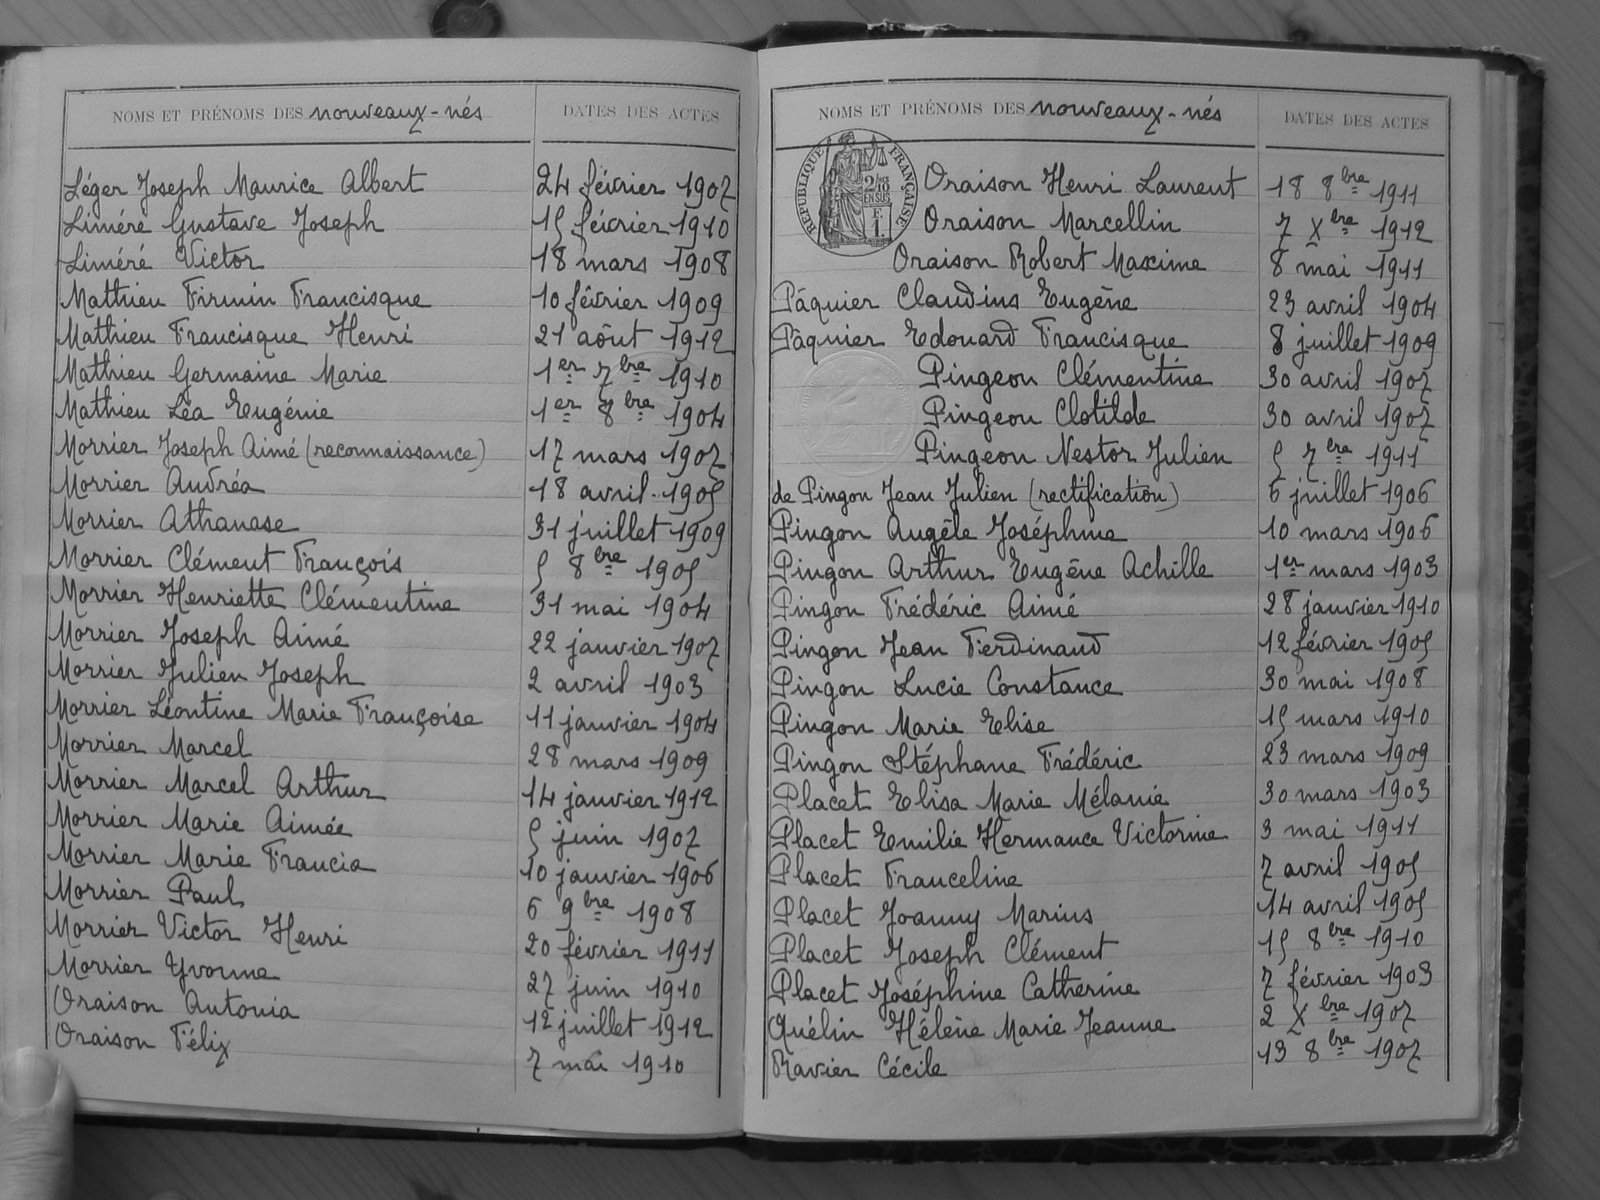 NOMS ET PRÉNOMS DES nouveaux-nés DATES DES ACTES
Léger Joseph Maurice Albert 24 février 1907
Liméré Gustave Joseph 15 février 1910
Liméré Victor 18 mars 1908
Mathieu Firmin Francisque 10 février 1909
Mathieu Francisque Henri 21 août 1912
Mathieu Germaine Marie 1er 7bre 1910
Mathieu Léa Eugénie 1er 8bre 1904
Morrier Joseph Aimé (reconnaissance) 17 mars 1907
Morrier Andréa 18 avril 1905
Morrier Athanase 31 juillet 1909
Morrier Clément François 5 8bre 1905
Morrier Henriette Clémentine 31 mai 1904
Morrier Joseph Aimé 22 janvier 1907
Morrier Julien Joseph 2 avril 1903
Morrier Léontine Marie Françoise 11 janvier 1904
Morrier Marcel 28 mars 1909
Morrier Marcel Arthur 14 janvier 1912
Morrier Marie Aimée 5 juin 1907
Morrier Marie Francia 10 janvier 1906
Morrier Paul 6 9bre 1908
Morrier Victor Henri 20 février 1911
Morrier Yvonne 27 juin 1910
Oraison Antonia 12 juillet 1912
Oraison Félix 7 mai 1910
NOMS ET PRÉNOMS DES nouveaux-nés DATES DES ACTES
RÉPUBLIQUE FRANÇAISE
2/10 EN SUS
F. 1.
Oraison Henri Laurent 18 8bre 1911
Oraison Marcellin 7 Xbre 1912
Oraison Robert Maxime 8 mai 1911
Pâquier Claudius Eugène 23 avril 1904
Pâquier Edouard Francisque 8 juillet 1909
Pingeon Clémentine 30 avril 1907
Pingeon Clotilde 30 avril 1907
Pingeon Nestor Julien 5 7bre 1911
de Pingon Jean Julien (rectification) 6 juillet 1906
Pingon Angèle Joséphine 10 mars 1906
Pingon Arthur Eugène Achille 1er mars 1903
Pingon Frédéric Aimé 28 janvier 1910
Pingon Jean Ferdinand 12 février 1905
Pingon Lucie Constance 30 mai 1908
Pingon Marie Elise 15 mars 1910
Pingon Stéphane Frédéric 23 mars 1909
Placet Elisa Marie Mélanie 30 mars 1903
Placet Emilie Hermance Victorine 3 mai 1911
Placet Franceline 7 avril 1905
Placet Joanny Marius 14 avril 1905
Placet Joseph Clément 15 8bre 1910
Placet Joséphine Catherine 7 février 1903
Quélin Hélène Marie Jeanne 2 Xbre 1907
Ravier Cécile 13 8bre 1907